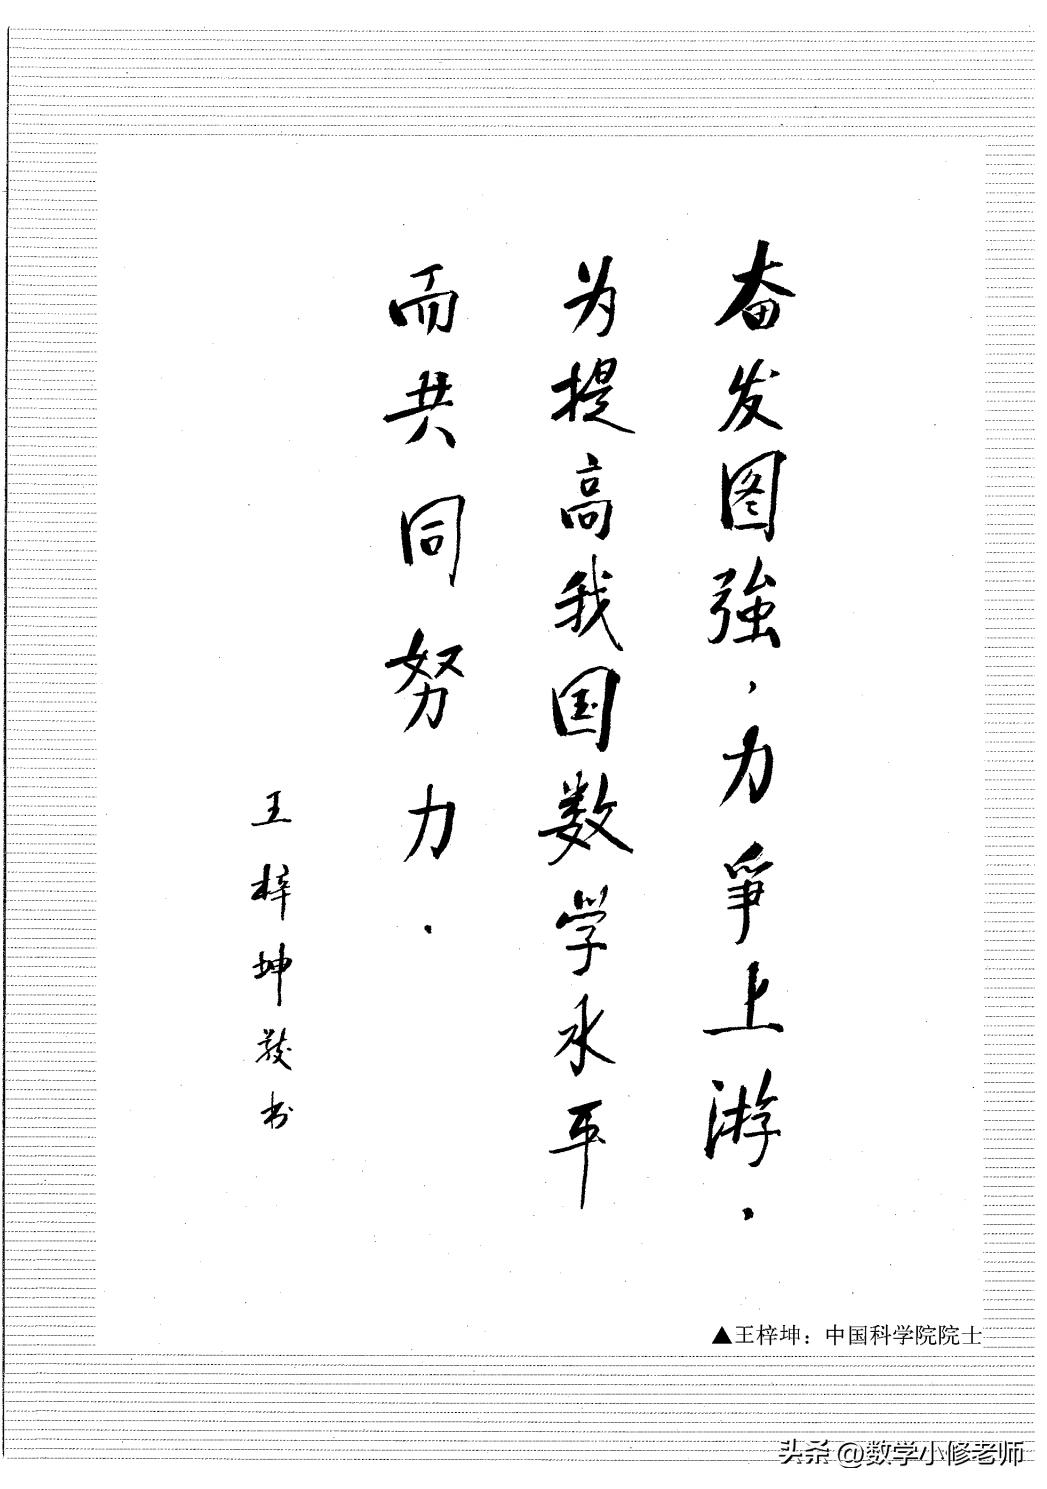 奋发图強，力爭上游．
为提高我国数学水平
而共同努力．
王梓坤敬书
▲王梓坤：中国科学院院士
头条 @数学小修老师